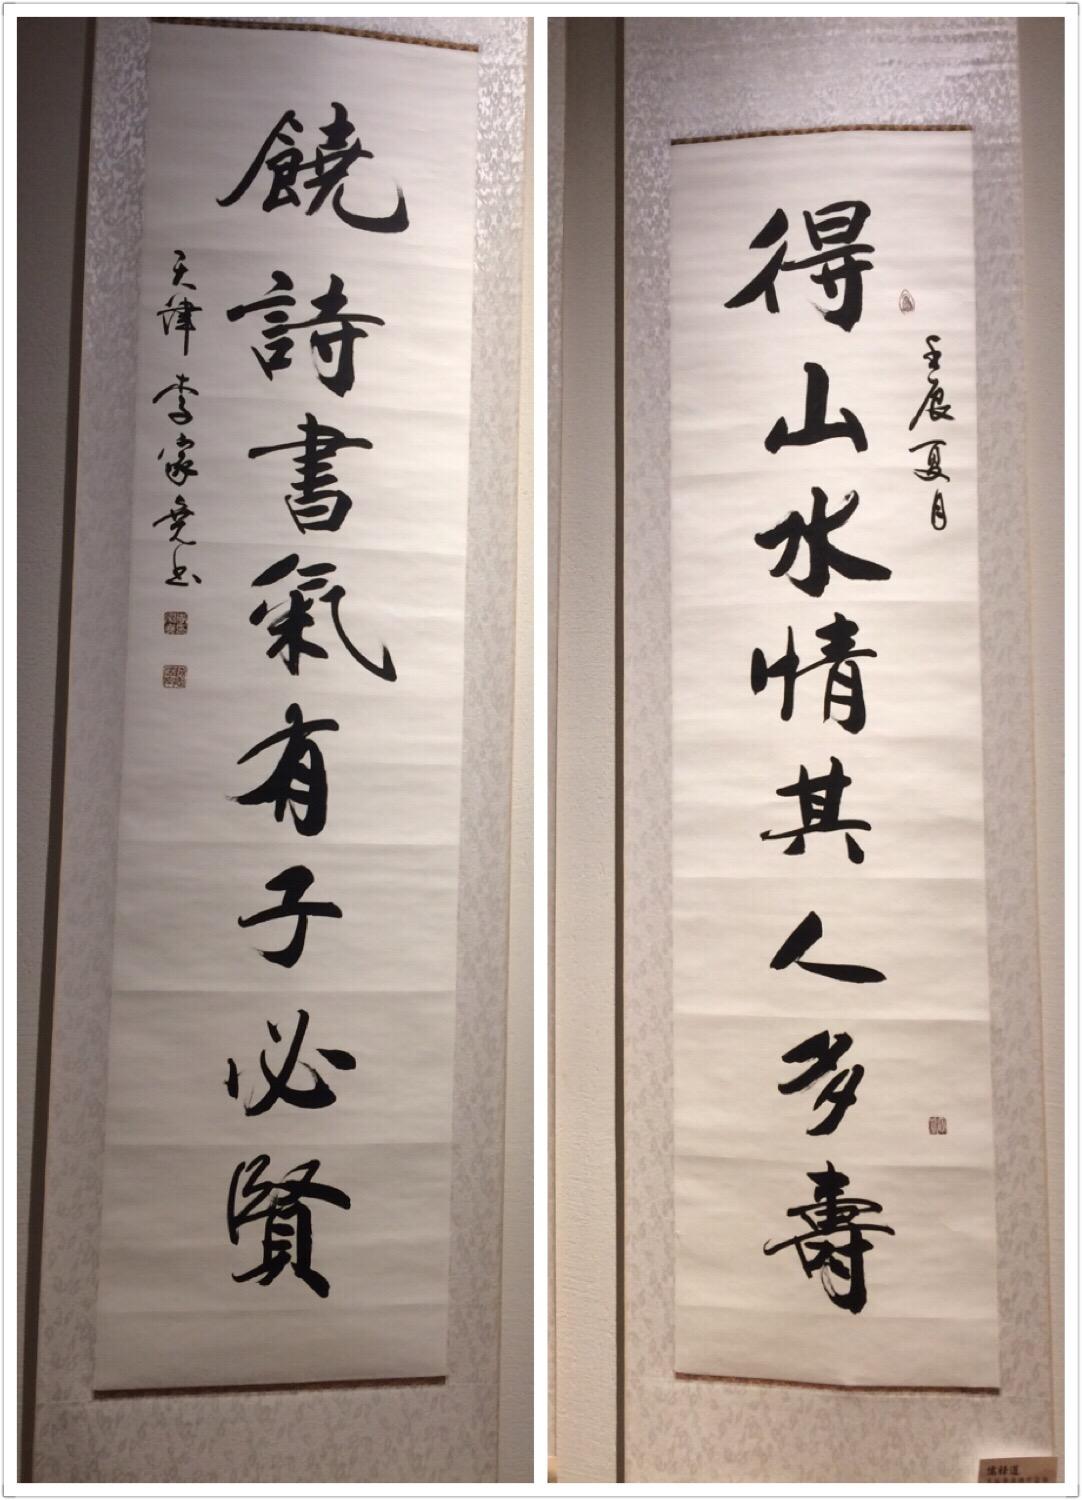 得山水情其人多壽
壬辰夏月
饒詩書氣有子必賢
天津 李家堯书
儒釋道